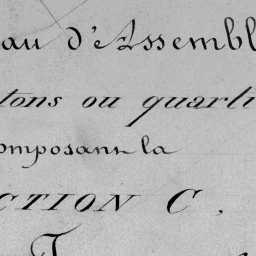 au d'Assembl
tons ou quarti
omposant la
CTION C.
T